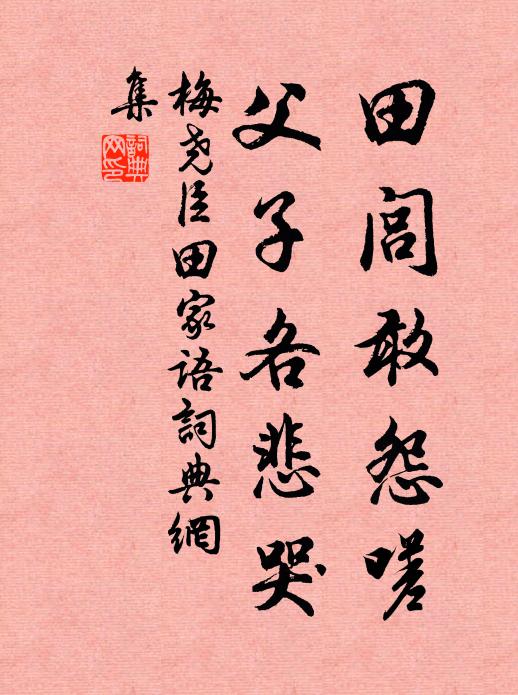 田闾敢怨嗟
父子各悲哭
梅尧臣田家语詞典網
集
詞典
网印